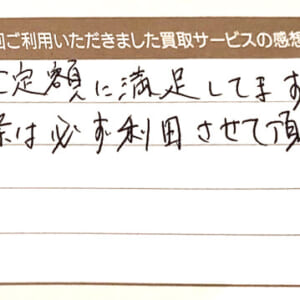 回ご利用いただきました買取サービスの感想
定額に満足してます
際は必ず利用させて頂